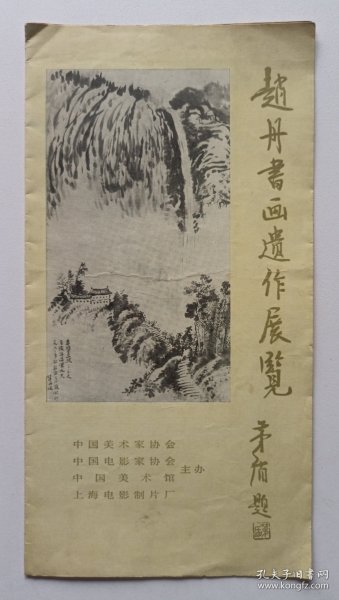 趙丹書画遺作展覽
茅盾題
中国美术家协会
中国电影家协会
中国美术馆
上海电影制片厂
主办
孔夫子旧书网